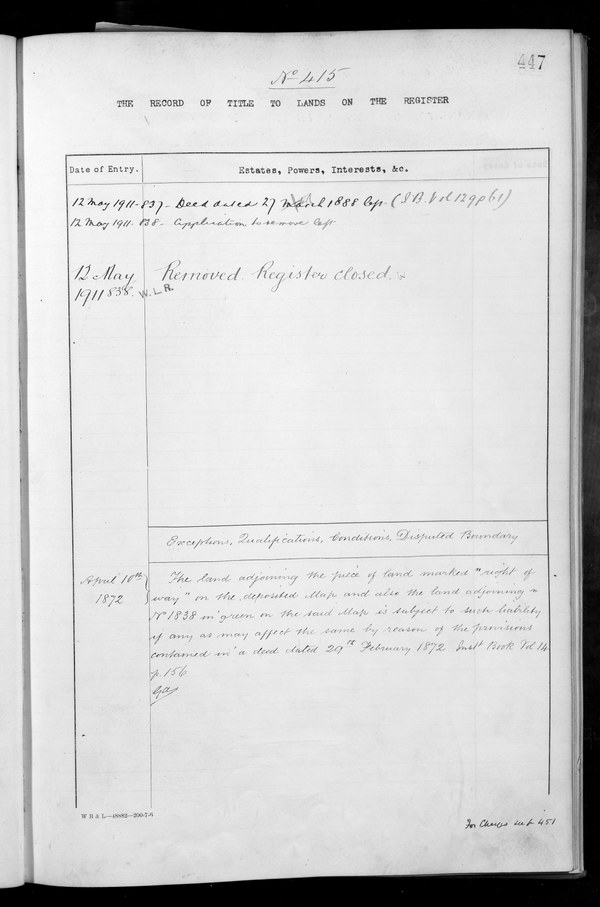 447
No 415
THE RECORD OF TITLE TO LANDS ON THE REGISTER
Date of Entry.
Estates, Powers, Interests, &c.
12 May 1911-837- Deed dated 27 March 1888 (I.B. Vol 129 p 61)
12 May 1911. 838- Application to remove
12 May
1911 838.
W.L.R.
Removed. Register closed.
Exceptions, Qualifications, Conditions, Disputed Boundary
April 10th
1872
The land adjoining the piece of land marked "right of
way" on the deposited Map and also the land adjoining
No 1838 in green on the said Map is subject to such liability
if any as may affect the same by reason of the provisions
contained in a deed dated 29th February 1872 Inst Book Vol 14
p. 156
W B & L—48882—200-7-5
For Charges see f 451